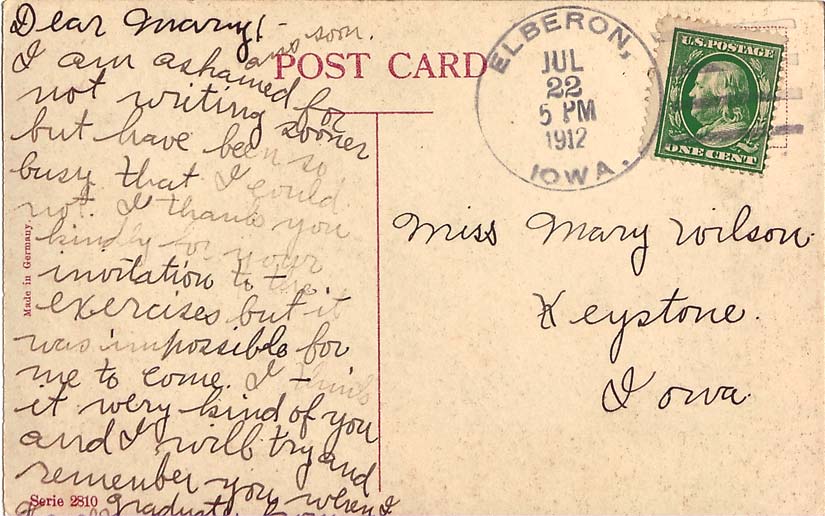 Dear Mary!-
ans soon.
I am ashamed for
not writing sooner
but have been so
busy that I could
not. I thank you
kindly for your
invitation to the
exercises but it
was impossible for
me to come. I think
it very kind of you
and I will try and
remember you when I
graduate
POST CARD
Made in Germany.
Serie 2810
ELBERON,
JUL
22
5 PM
1912
IOWA.
U.S. POSTAGE
ONE CENT
Miss Mary Wilson.
Keystone.
Iowa.